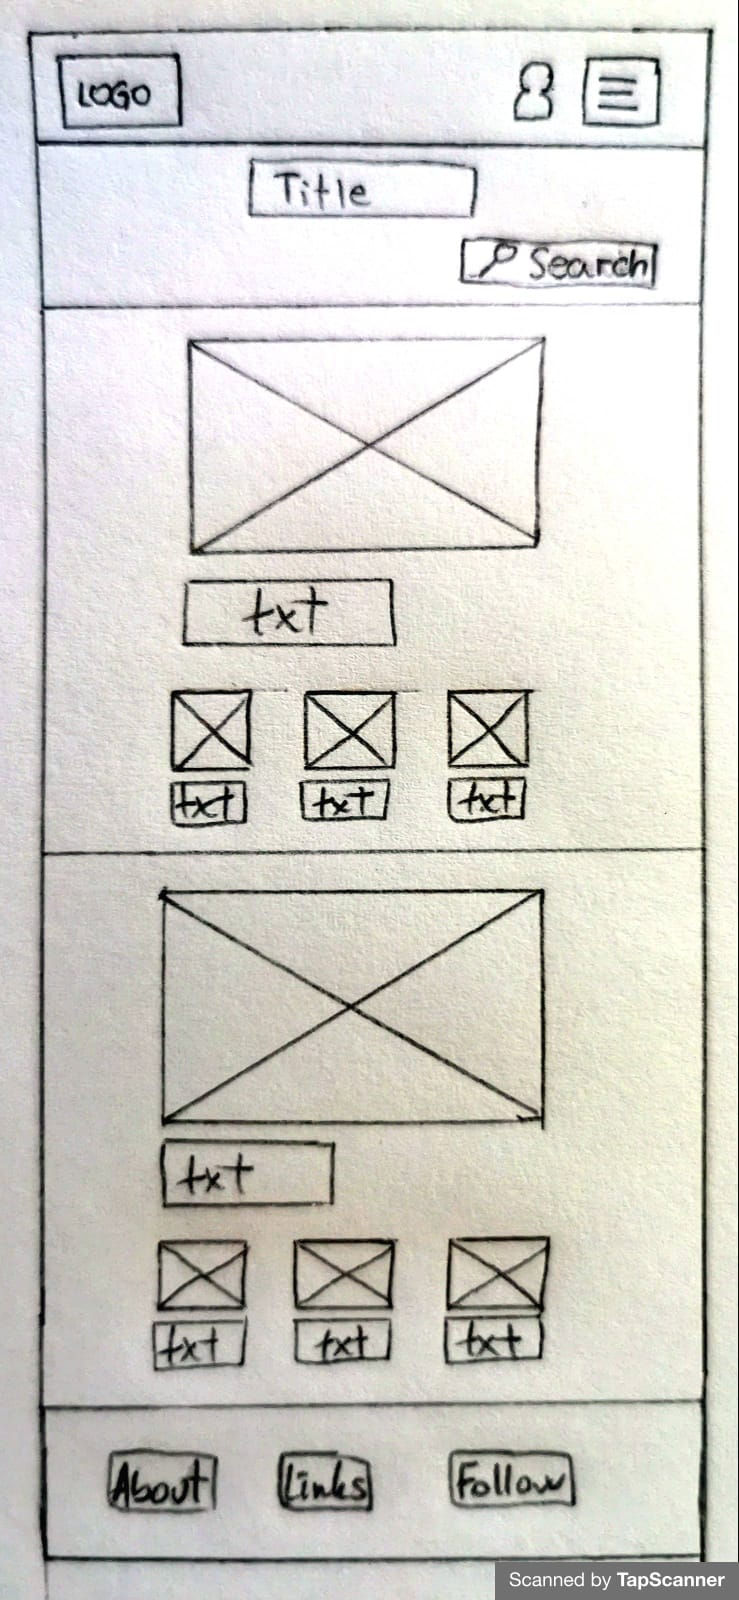 LOGO
Title
Search
txt
txt txt txt
txt
txt txt txt
About Links Follow
Scanned by TapScanner